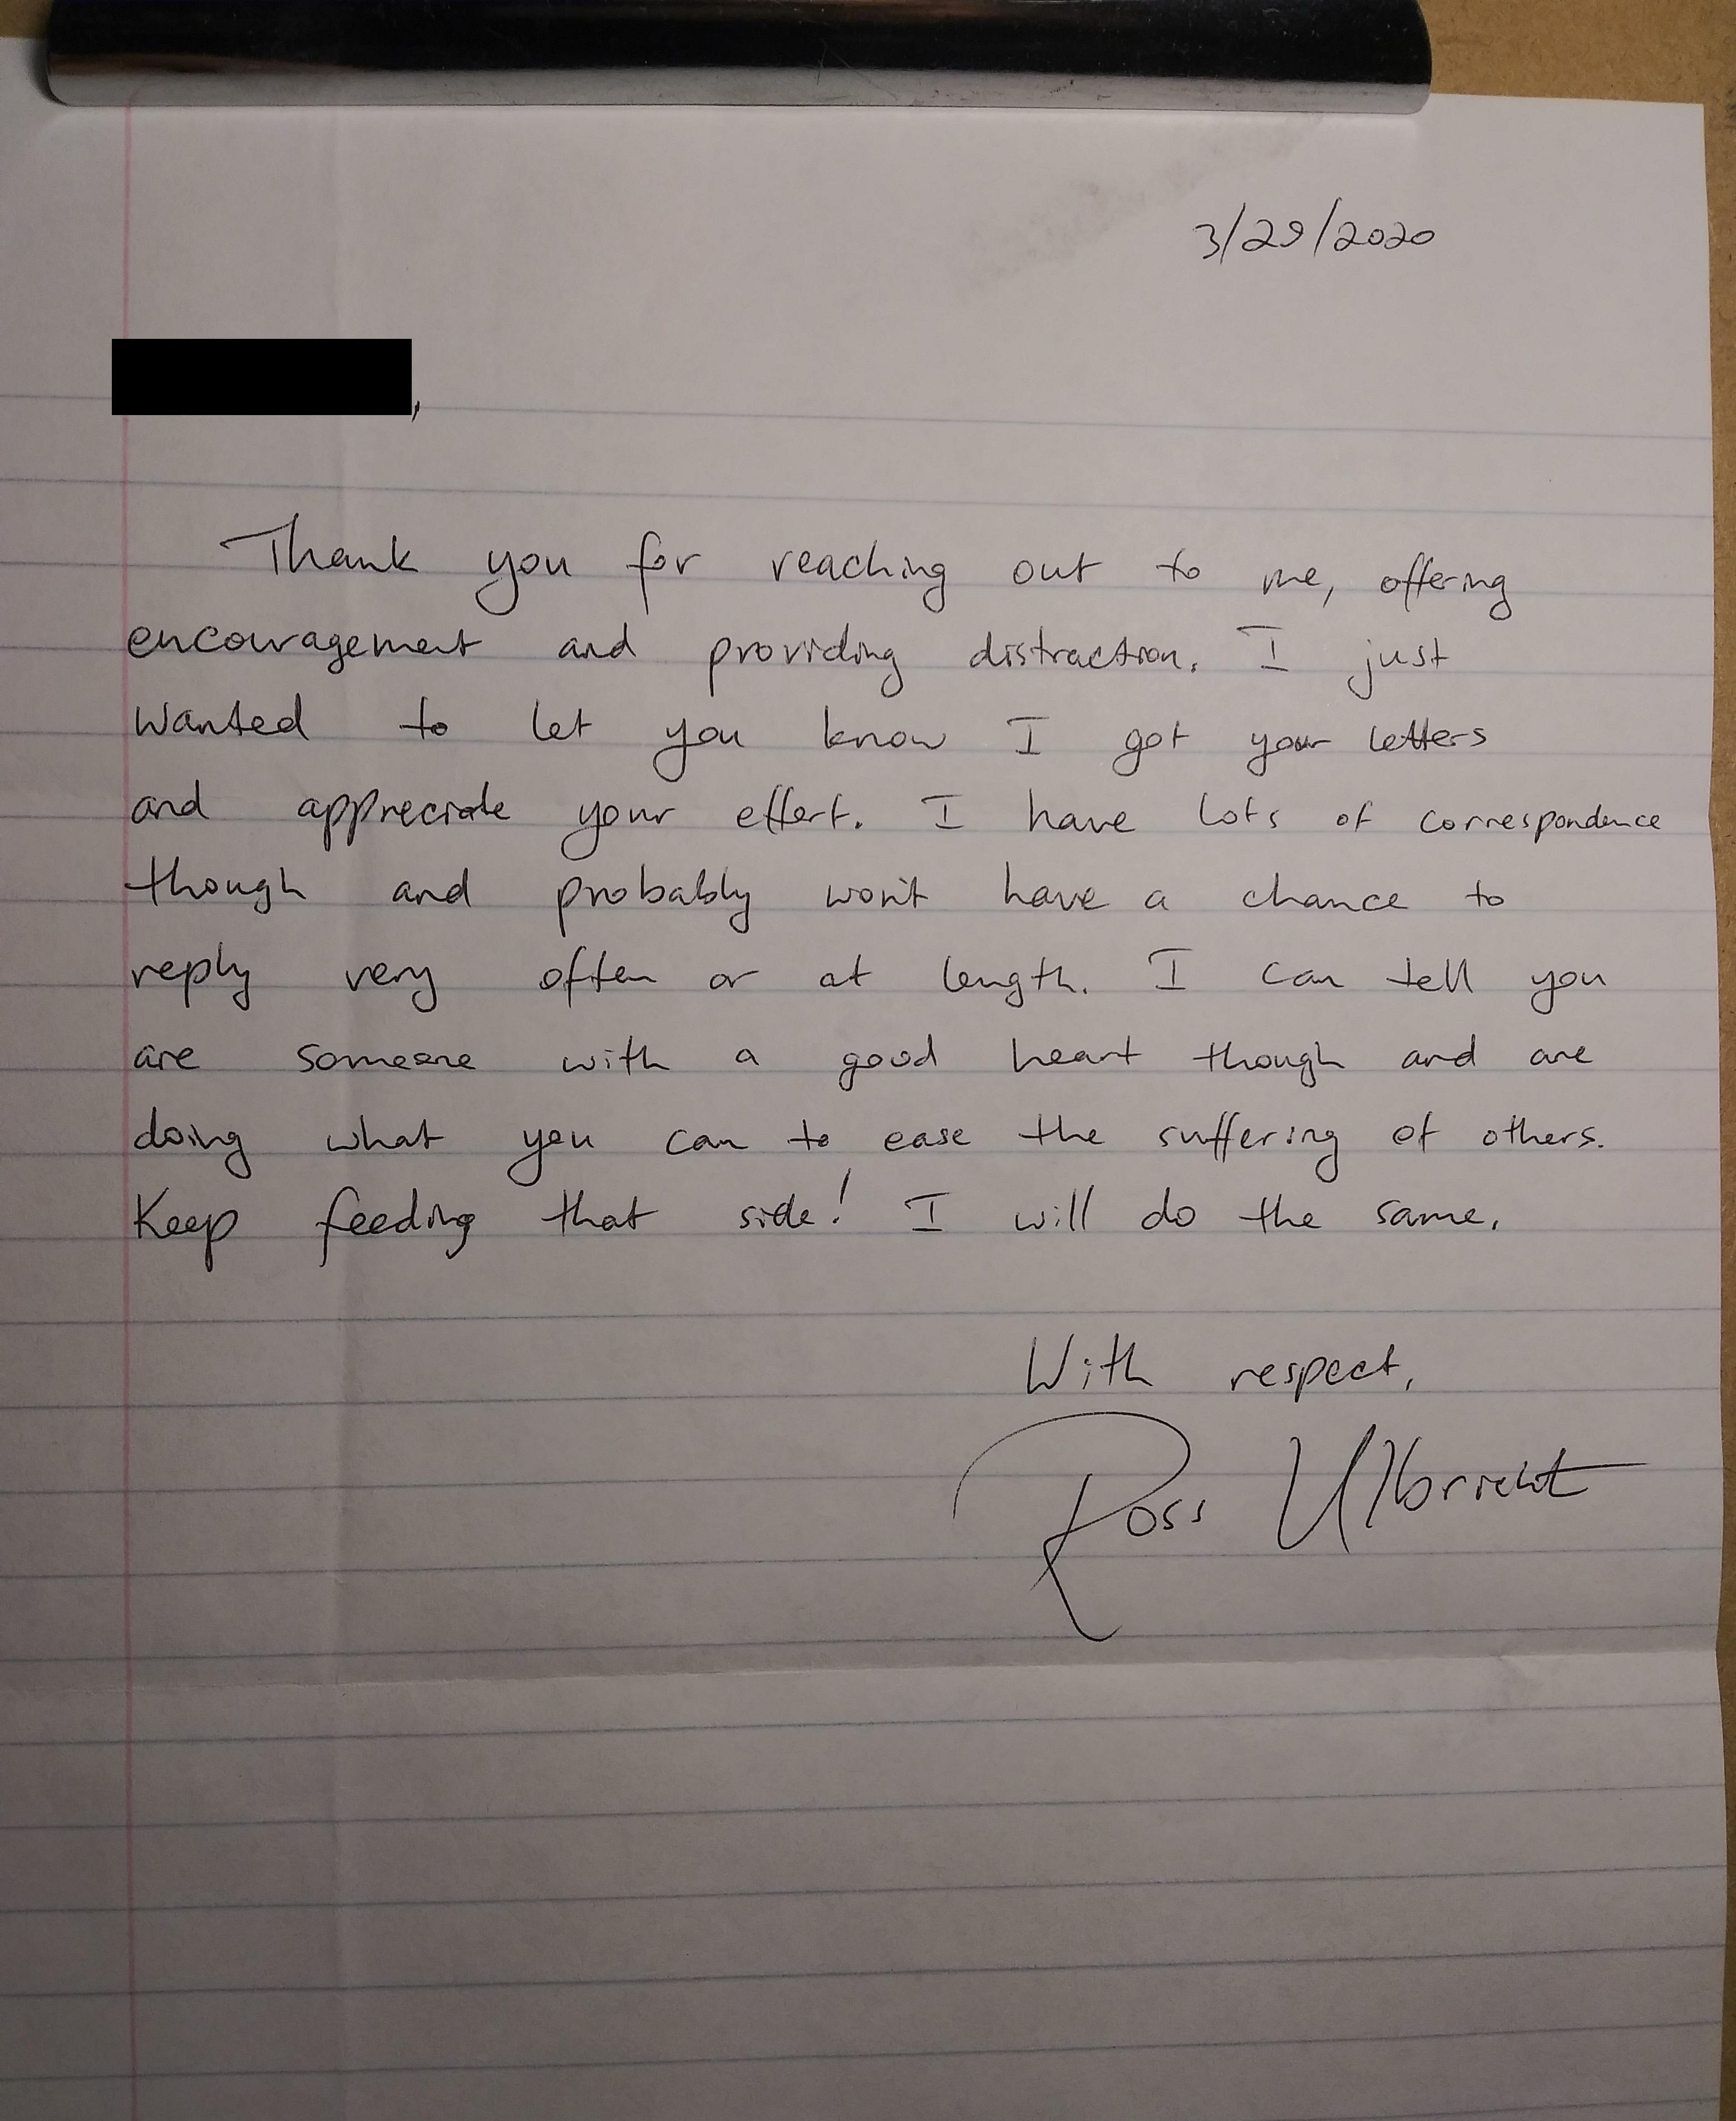 3/29/2020
,
Thank you for reaching out to me, offering
encouragement and providing distraction. I just
wanted to let you know I got your letters
and appreciate your effort. I have lots of correspondence
though and probably won't have a chance to
reply very often or at length. I can tell you
are someone with a good heart though and are
doing what you can to ease the suffering of others.
Keep feeding that side! I will do the same.
With respect,
Ross Ulbricht